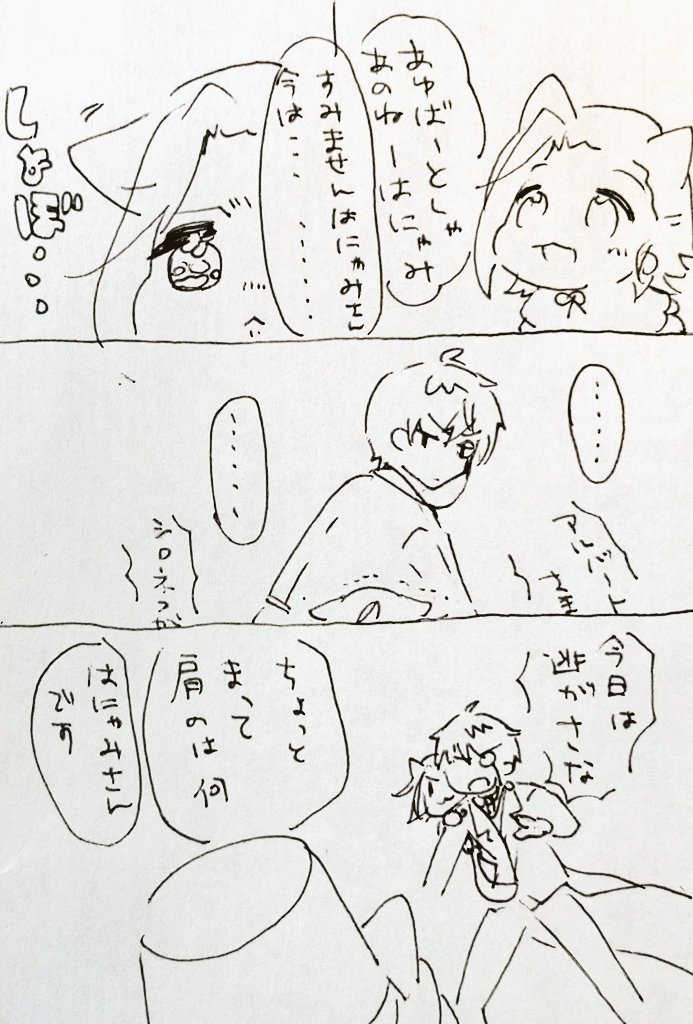 あゆばーとしゃ
あのねーはにゃみ
すみませんはにゃみさん
今は・・・・・・・・・
しょぼ・・・
・・・・・
アルバート
さま
・・・・・
シロネコが
今日は
逃がさな
ちょっと
まって
肩のは何
はにゃみさん
です